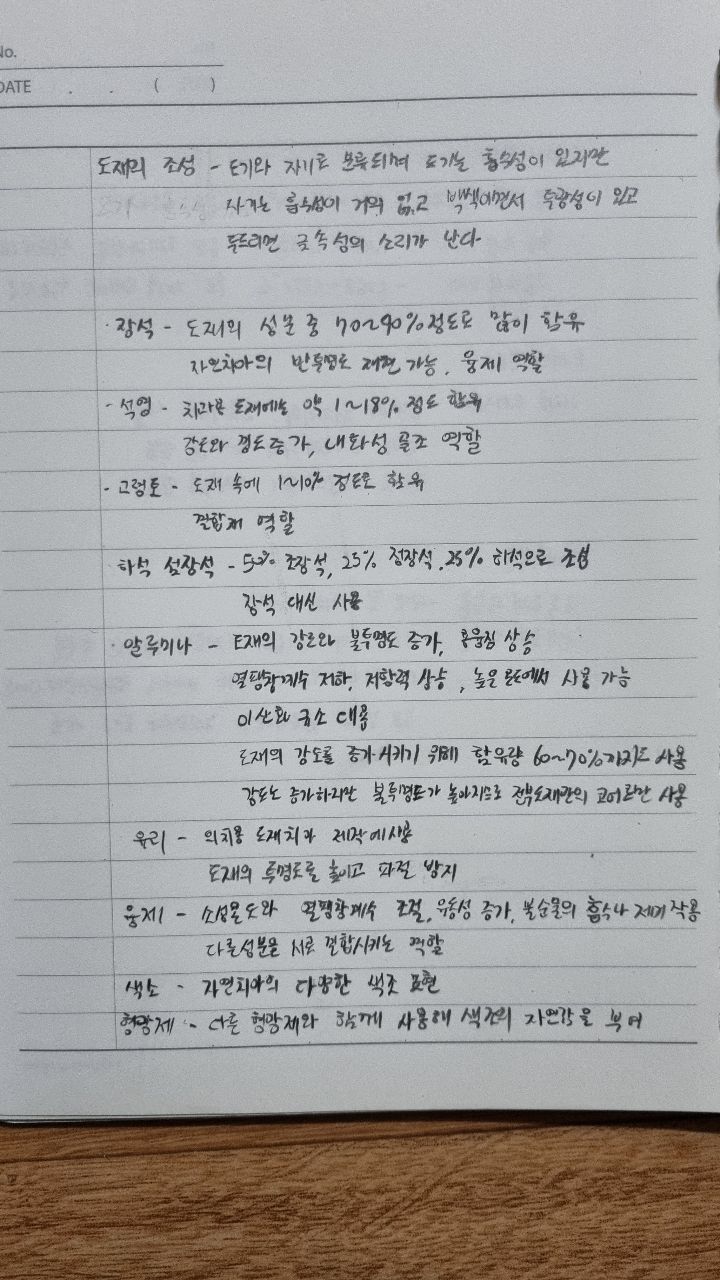 No.
DATE . . ( )
도재의 조성 - 도기와 자기로 분류되며 도기는 흡수성이 있지만
자기는 흡수성이 거의 없고 백색이면서 투광성이 있고
두드리면 금속성의 소리가 난다
· 장석 - 도재의 성분 중 70~90% 정도로 많이 함유
자연치아의 반투명도 재현 가능, 융제 역할
· 석영 - 치과용 도재에는 약 1~18% 정도 함유
강도와 경도증가, 내화성 골조 역할
· 고령토 - 도재 속에 1~10% 정도로 함유
결합재 역할
하석 섬장석 - 50% 조장석, 25% 정장석, 25% 하석으로 조성
장석 대신 사용
· 알루미나 - 도재의 강도와 불투명도 증가, 용융점 상승
열팽창계수 저하, 저항력 상승, 높은 온도에서 사용 가능
이산화 규소 대용
도재의 강도를 증가시키기 위해 함유량 60~70%까지도 사용
강도는 증가하지만 불투명도가 높아지므로 전부도재관의 코어로만 사용
유리 - 의치용 도재치과 제작에 사용
도재의 투명도를 높이고 파절 방지
융제 - 소성온도와 열팽창계수 조절, 유동성 증가, 불순물의 흡수나 제거 작용
다른성분을 서로 결합시키는 역할
색소 - 자연치아의 다양한 색조 표현
형광제 - 다른 형광제와 함께 사용해 색조의 자연감을 부여